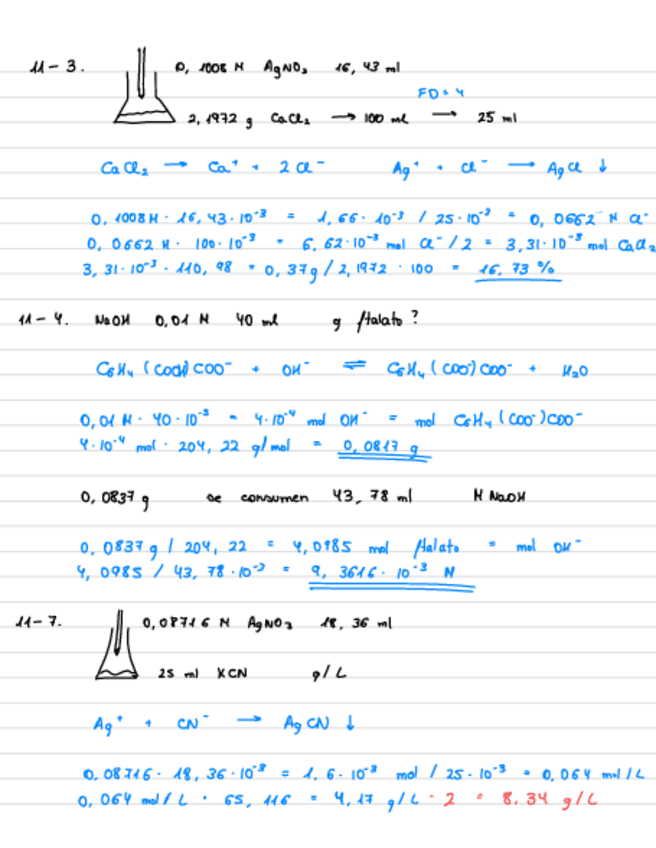 11-3. 0,1008 M AgNO₃ 16,43 ml
FD = 4
2,1972 g CaCl₂ → 100 ml → 25 ml
CaCl₂ → Ca⁺ + 2Cl⁻ Ag⁺ + Cl⁻ → AgCl ↓
0,1008 M · 16,43·10⁻³ = 1,66·10⁻³ / 25·10⁻³ = 0,0662 M Cl⁻
0,0662 M · 100·10⁻³ = 6,62·10⁻³ mol Cl⁻/2 = 3,31·10⁻³ mol CaCl₂
3,31·10⁻³ · 110,98 = 0,37g / 2,1972 · 100 = 16,73 %
11-4. NaOH 0,01 M 40 ml g ftalato?
C₆H₄(COOH)COO⁻ + OH⁻ ⇌ C₆H₄(COO⁻)COO⁻ + H₂O
0,01 M · 40·10⁻³ = 4·10⁻⁴ mol OH⁻ = mol C₆H₄(COO⁻)COO⁻
4·10⁻⁴ mol · 204,22 g/mol = 0,0817 g
0,0837 g se consumen 43,78 ml M NaOH
0,0837 g / 204,22 = 4,0985 mol ftalato = mol OH⁻
4,0985 / 43,78·10⁻³ = 9,3616·10⁻³ M
11-7. 0,08716 M AgNO₃ 18,36 ml
25 ml KCN g/L
Ag⁺ + CN⁻ → AgCN ↓
0,08716 · 18,36·10⁻³ = 1,6·10⁻³ mol / 25·10⁻³ = 0,064 mol/L
0,064 mol/L · 65,116 = 4,17 g/L · 2 = 8,34 g/L